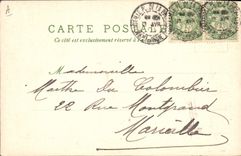 CARTE POS
Ce côté est exclusivement réservé à
Mademoiselle
Marthe La Colombier
22 Rue Montgrand
Marseille